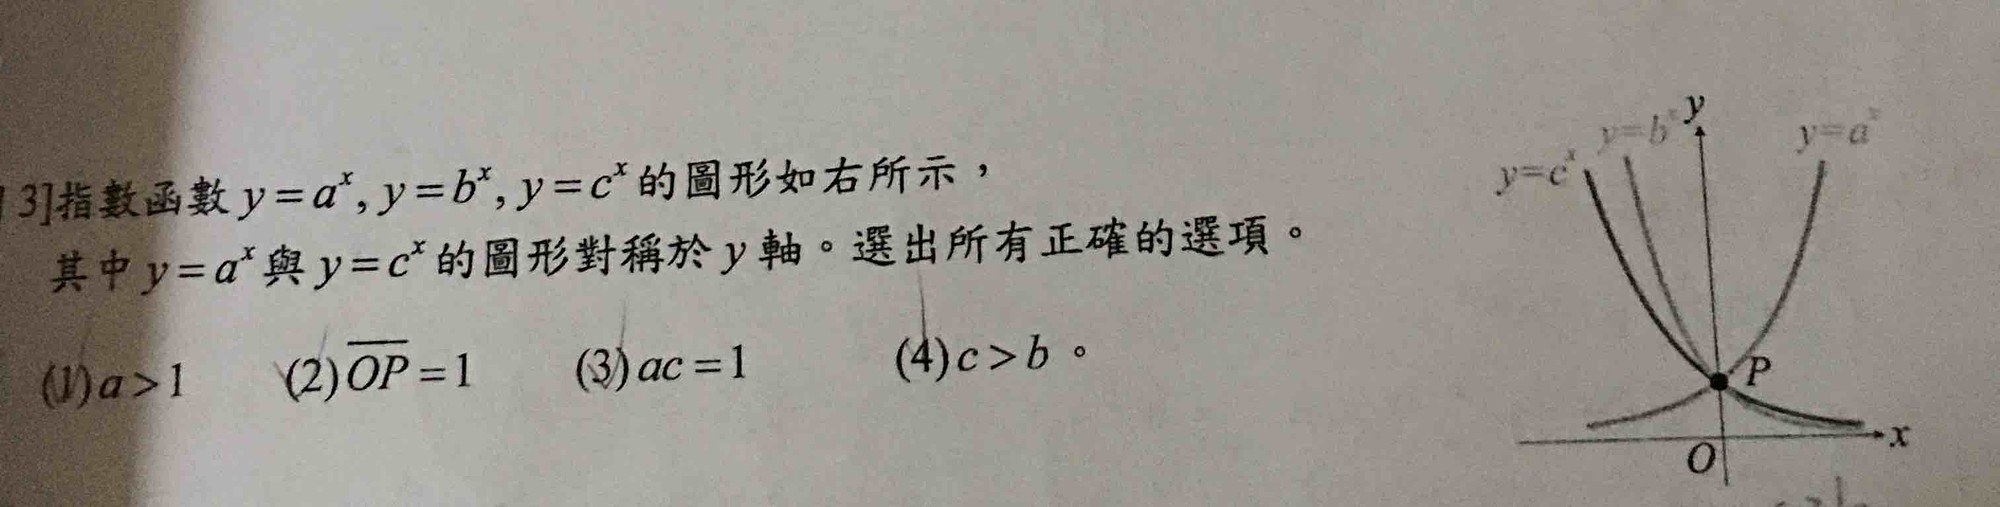 3]指數函數 y = aˣ, y = bˣ, y = cˣ 的圖形如右所示，
其中 y = aˣ 與 y = cˣ 的圖形對稱於 y 軸。選出所有正確的選項。
(1) a > 1 (2) \overline{OP} = 1 (3) ac = 1 (4) c > b。
y
y=bˣ
y=aˣ
y=cˣ
P
x
O